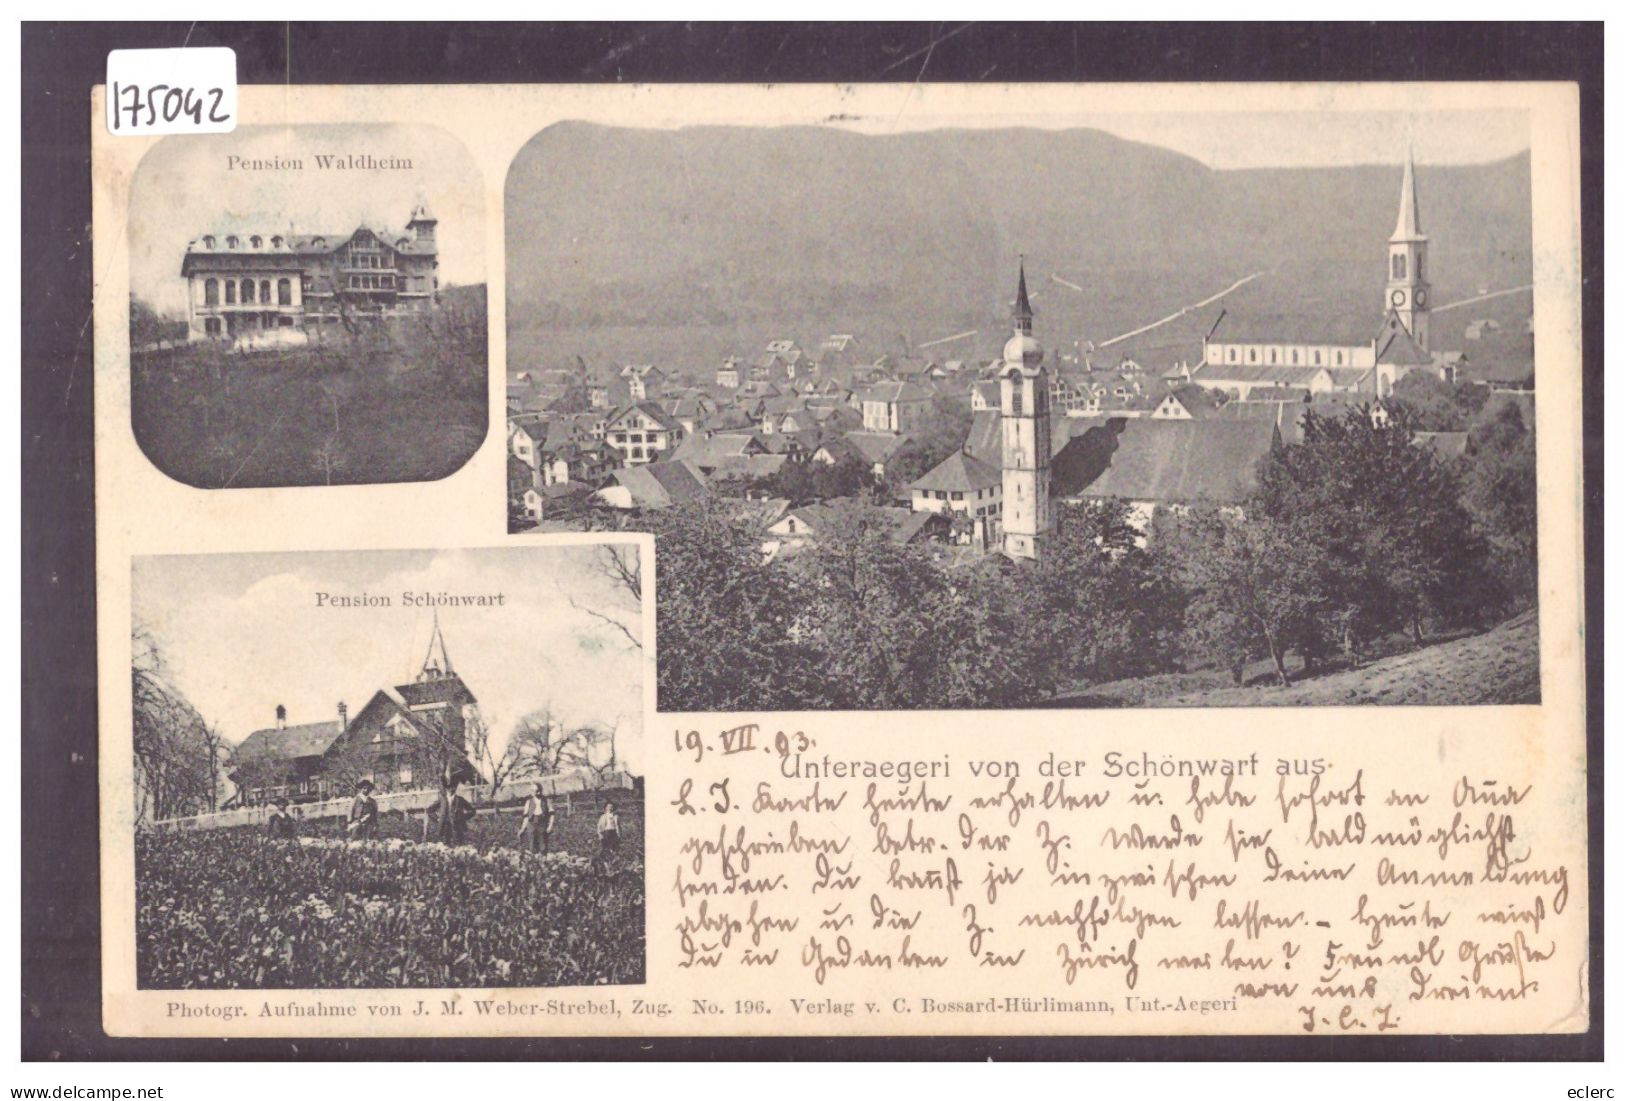 175042
Pension Waldheim
Pension Schönwart
19. VII. 03.
Unteraegeri von der Schönwart aus.
L. J. Karte heute erhalten u. habe sofort an
geschrieben betr. der Z. Werde sie baldmöglichst
senden. Du kannst ja inzwischen deine Anmeldung
abgehen u. die Z. nachfolgen lassen. – Heute wirst
du in Gedanken in Zürich weilen? Freundl Grüsse
von uns dreien.
J. C. J.
Photogr. Aufnahme von J. M. Weber-Strebel, Zug. No. 196. Verlag v. C. Bossard-Hürlimann, Unt.-Aegeri
delcampe.net
eclerc